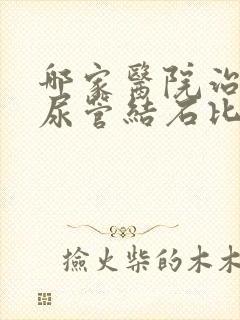 邮家醫院治
尿管結石比
撿火柴的木木